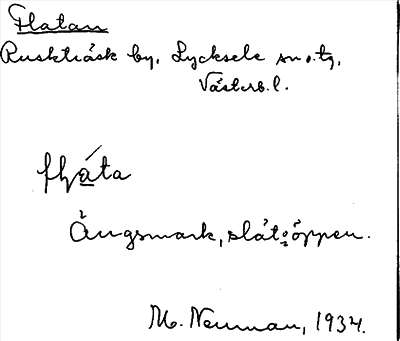 Flatan
Ruskträsk by, Lycksele sn o. tg,
Västerb. l.
flạ́ta
Ängsmark, slåt; öppen.
M. Neuman, 1934.